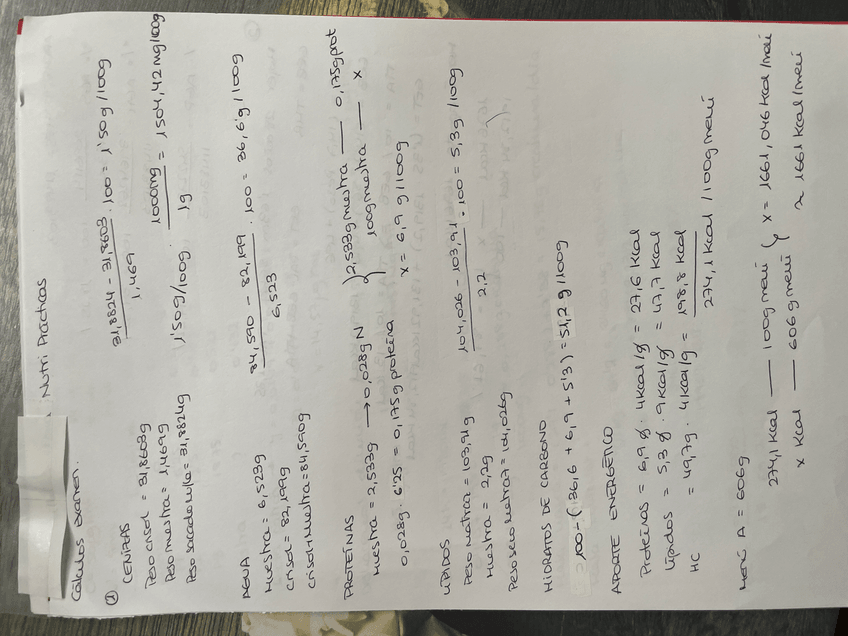 Cálculos examen. Nutri Prácticas
① CENIZAS
Peso crisol = 31,8603g
Peso muestra = 1,469g
Peso sacado mufla = 31,8824g
31,8824 - 31,8603 / 1,469 · 100 = 1'50 g/100g
1'50 g/100g · 1000mg / 1g = 1504,42 mg/100g
AGUA
Muestra = 6,523g
Crisol = 82,199g
Crisol+Muestra = 84,590g
84,590 - 82,199 / 6,523 · 100 = 36,6 g/100g
PROTEÍNAS
Muestra = 2,533g → 0,028g N
0,028g · 6'25 = 0,175g proteína
2,533g muestra — 0,175g prot
100g muestra — x
x = 6,9 g/100g
LÍPIDOS
Peso matraz = 103,91g
Muestra = 2,2g
Peso seco matraz = 104,026g
104,026 - 103,91 / 2,2 · 100 = 5,3 g/100g
HIDRATOS DE CARBONO
= 100 - (36,6 + 6,9 + 5'3) = 51,2 g/100g
APORTE ENERGÉTICO
Proteínas = 6,9 g · 4kcal/g = 27,6 kcal
Lípidos = 5,3 g · 9kcal/g = 47,7 kcal
HC = 49,7g · 4kcal/g = 198,8 kcal
274,1 kcal/100g menú
Menú A = 606g
274,1 kcal — 100g menú
x kcal — 606g menú
x = 1661,046 kcal/menú
≈ 1661 kcal/menú